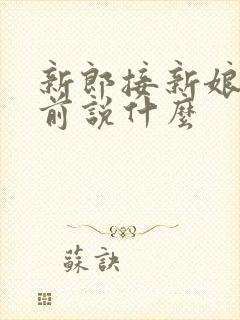 新郎接新娘
前說什麼
蘇訣